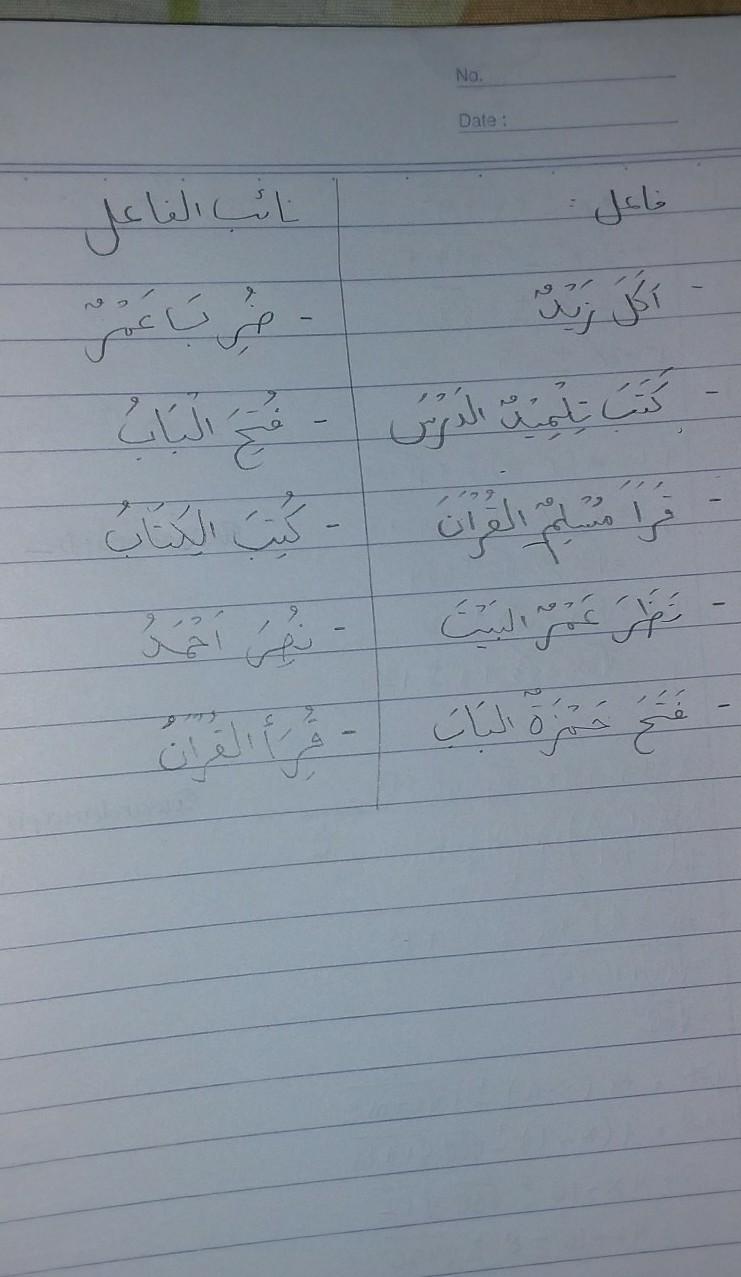 No.
Date :
فاعل : نائب الفاعل
- اَكَلَ زَيْدٌ - ضُرِبَا عَمْرٌ
- كَتَبَ تِلْمِيْذٌ الدَرْسَ - فُتِحَ الْبَابُ
- قَرَأَ مُسْلِمٌ الْقُرْاَنَ - كُتِبَ الْكِتَابُ
- نَظَرَ عَمْرٌ الْبَيْتَ - نُصِرَ اَحْمَدُ
- فَتَحَ حَمْزَةٌ الْبَابَ - قُرِأَ الْقُرْاَنُ